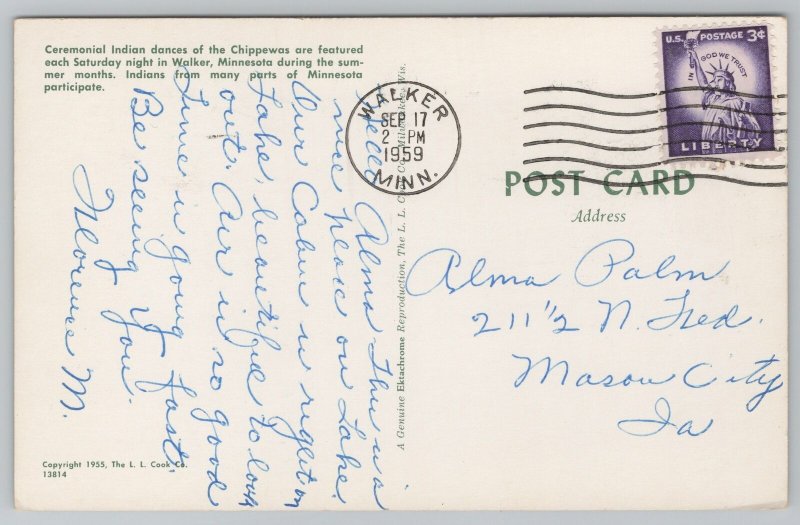 Ceremonial Indian dances of the Chippewas are featured
each Saturday night in Walker, Minnesota during the sum-
mer months. Indians from many parts of Minnesota
participate.
Hello Alma This is a
nice place on Lake.
Our Cabin is right on
Lake, beautiful to look
out. Air is so good
Time is going fast.
Be seeing you.
Florence M.
Copyright 1955, The L. L. Cook Co.
13814
A Genuine Ektachrome Reproduction, The L. L. Cook Co. Milwaukee, Wis.
WALKER
SEP 17
2 PM
1959
MINN.
U.S. POSTAGE 3¢
IN GOD WE TRUST
LIBERTY
POST CARD
Address
Alma Palm
211½ N. Fed.
Mason City
Ia